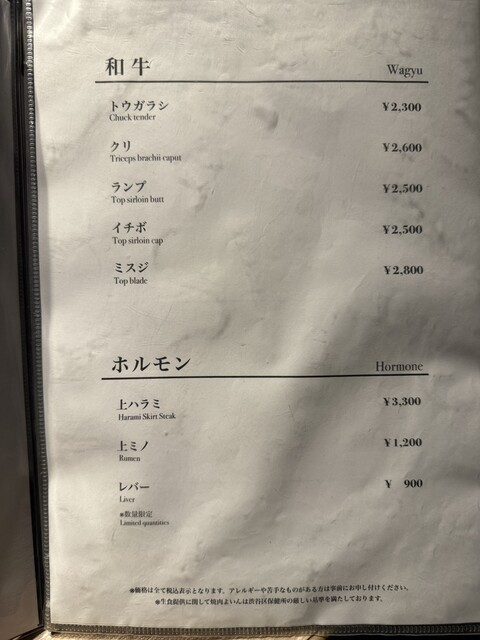 和牛 Wagyu
トウガラシ ¥2,300
Chuck tender
クリ ¥2,600
Triceps brachii caput
ランプ ¥2,500
Top sirloin butt
イチボ ¥2,500
Top sirloin cap
ミスジ ¥2,800
Top blade
ホルモン Hormone
上ハラミ ¥3,300
Harami Skirt Steak
上ミノ ¥1,200
Rumen
レバー ¥ 900
Liver
※数量限定
Limited quantities
※価格は全て税込表示となります。アレルギーや苦手なものがある方は事前にお申し付けください。
※生食提供に関して焼肉よいんは渋谷区保健所の厳しい基準を満たしております。